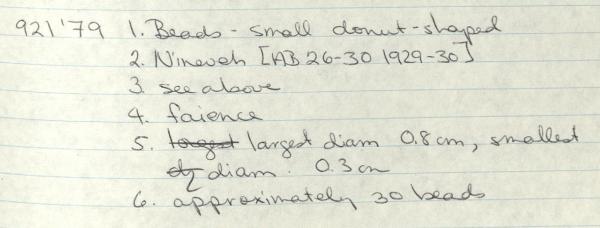 921'79 1. Beads - small donut-shaped
2. Nineveh [AB 26-30 1929-30]
3. see above
4. faience
5. largest diam 0.8cm, smallest
diam. 0.3cm
6. approximately 30 beads